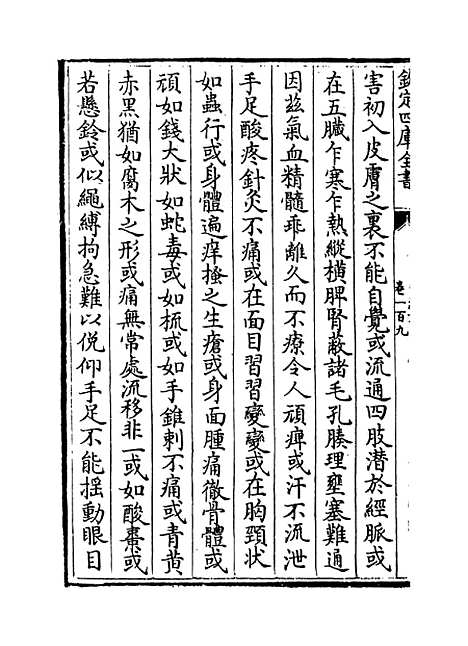 欽定四庫全書
卷一百九
害初入皮膚之裏不能自覺或流通四肢潛於經脈或
在五臟乍寒乍熱縱橫脾腎蔽諸毛孔腠理壅塞難通
因茲氣血精髓乖離久而不療令人頑痺或汗不流泄
手足酸疼針灸不痛或在面目習習變變或在胸頸狀
如蟲行或身體遍痒搔之生瘡或身面腫痛徹骨體或
頑如錢大狀如蛇毒或如梳或如手錐刺不痛或青黃
赤黑猶如腐木之形或痛無常處流移非一或如酸棗或
若懸鈴或似繩縛拘急難以俛仰手足不能揺動眼目